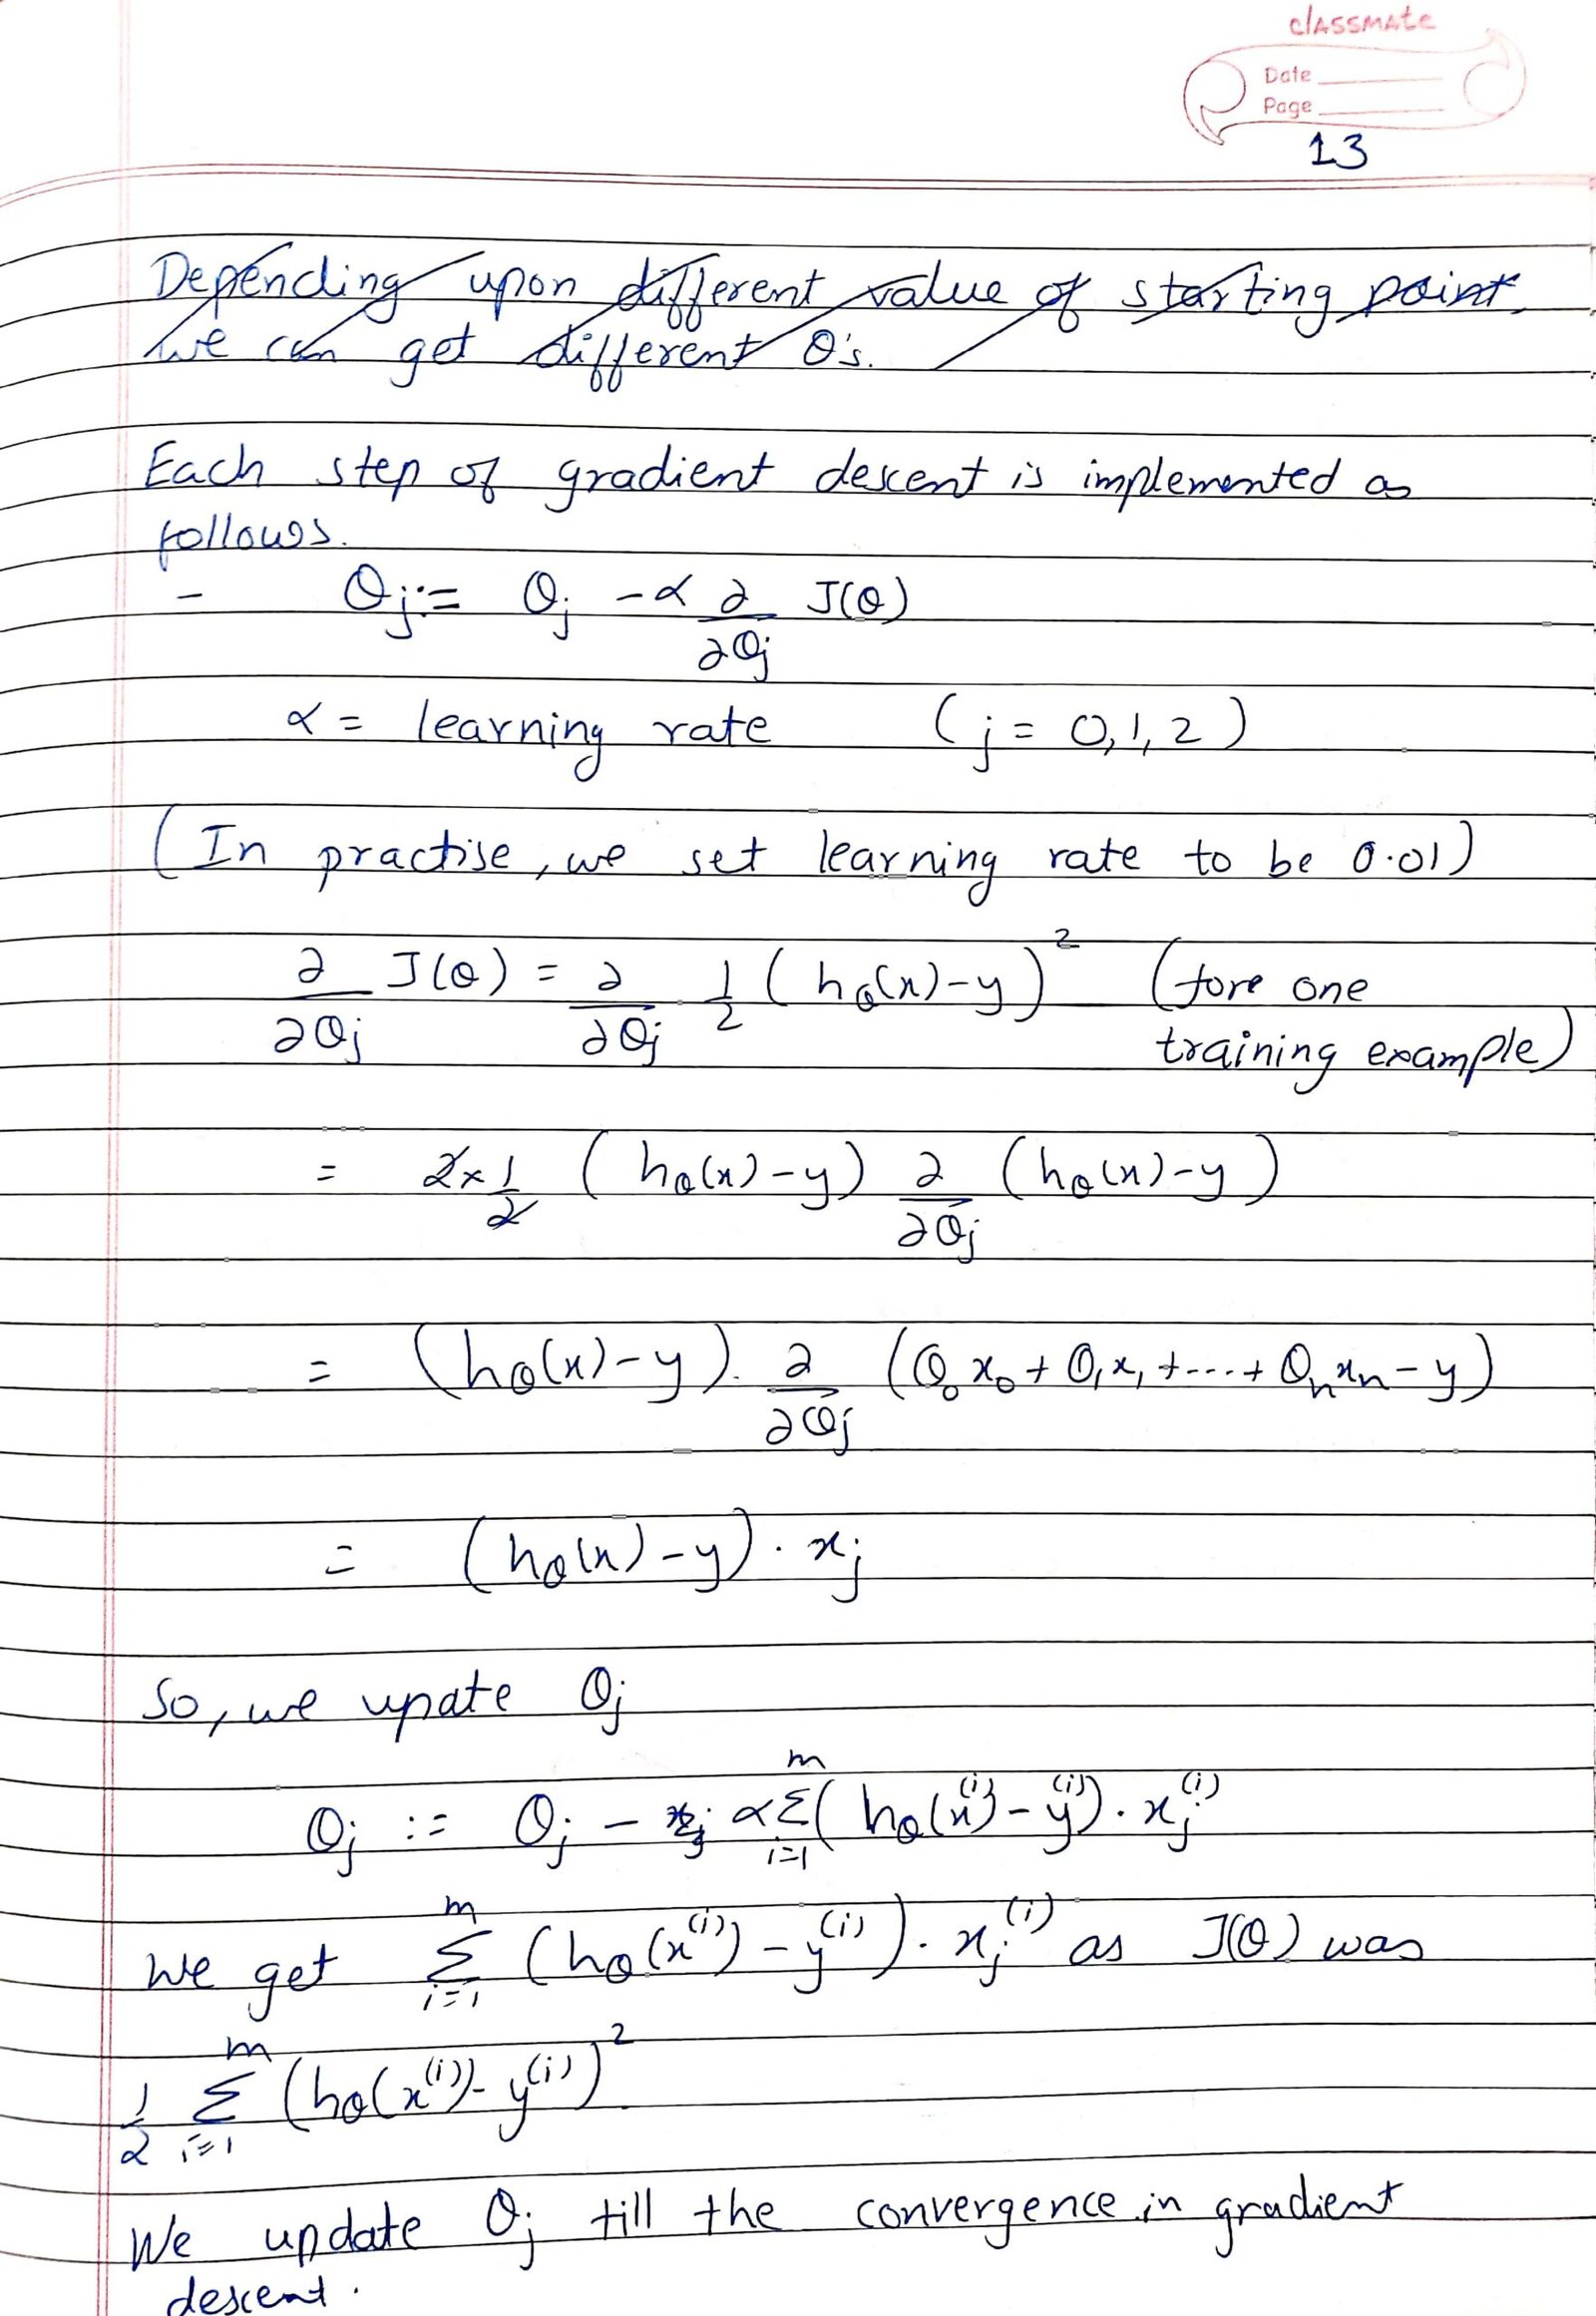 classmate
Date
Page
13
Depending upon different value of starting point,
we can get different θ's.
Each step of gradient descent is implemented as
follows.
- θj := θj - α ∂/∂θj J(θ)
α = learning rate (j = 0,1,2)
(In practise, we set learning rate to be 0.01)
∂/∂θj J(θ) = ∂/∂θj 1/2 (hθ(x)-y)² (fore one
training example)
= 2×1/2 (hθ(x)-y) ∂/∂θj (hθ(x)-y)
= (hθ(x)-y). ∂/∂θj (θ₀x₀ + θ₁x₁ +....+ θₙxₙ - y)
= (hθ(x)-y) . xj
So, we upate θj
θj := θj - α Σ_{i=1}^{m} (hθ(x^(i)) - y^(i)) . xj^(i)
We get Σ_{i=1}^{m} (hθ(x^(i)) - y^(i)) . xj^(i) as J(θ) was
1/2 Σ_{i=1}^{m} (hθ(x^(i)) - y^(i))².
We update θj till the convergence in gradient
descent.